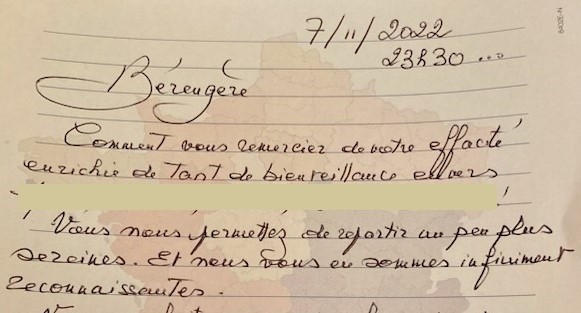 7/11/2022
23h30...
6432E-N
Bérengère
Comment vous remercier de votre effacté
enrichie de tant de bienveillance envers
!
Vous nous permettez de repartir un peu plus
sereines. Et nous vous en sommes infiniment
reconnaissantes.